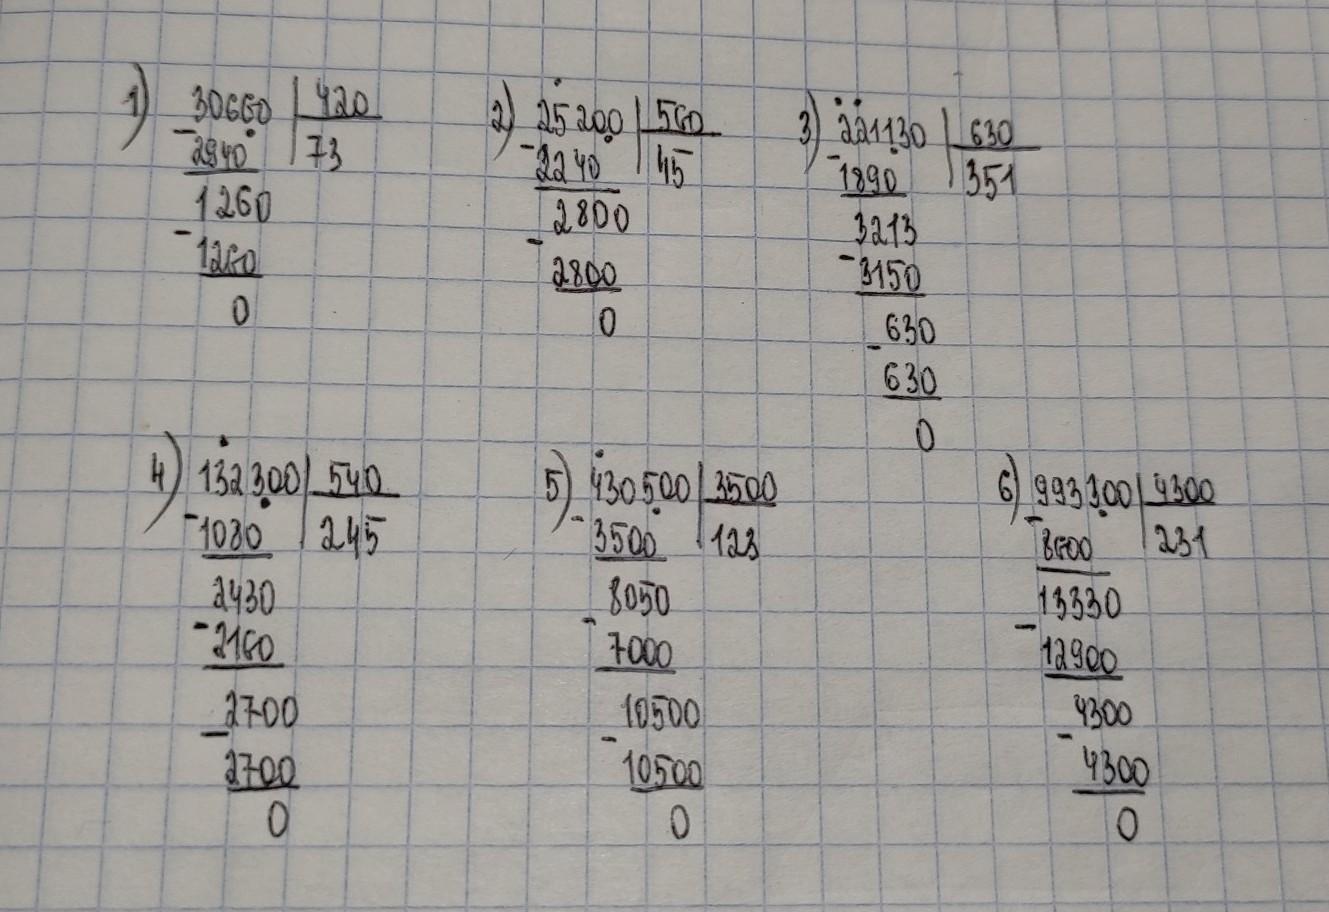 1) 30660 420
- 2940 73
1260
- 1260
0
2) 25200 560
- 2240 45
2800
- 2800
0
3) 221130 630
- 1890 351
3213
- 3150
630
- 630
0
4) 132300 540
- 1080 245
2430
- 2160
2700
- 2700
0
5) 430500 3500
- 3500 123
8050
- 7000
10500
- 10500
0
6) 993300 4300
- 8600 231
13330
- 12900
4300
- 4300
0